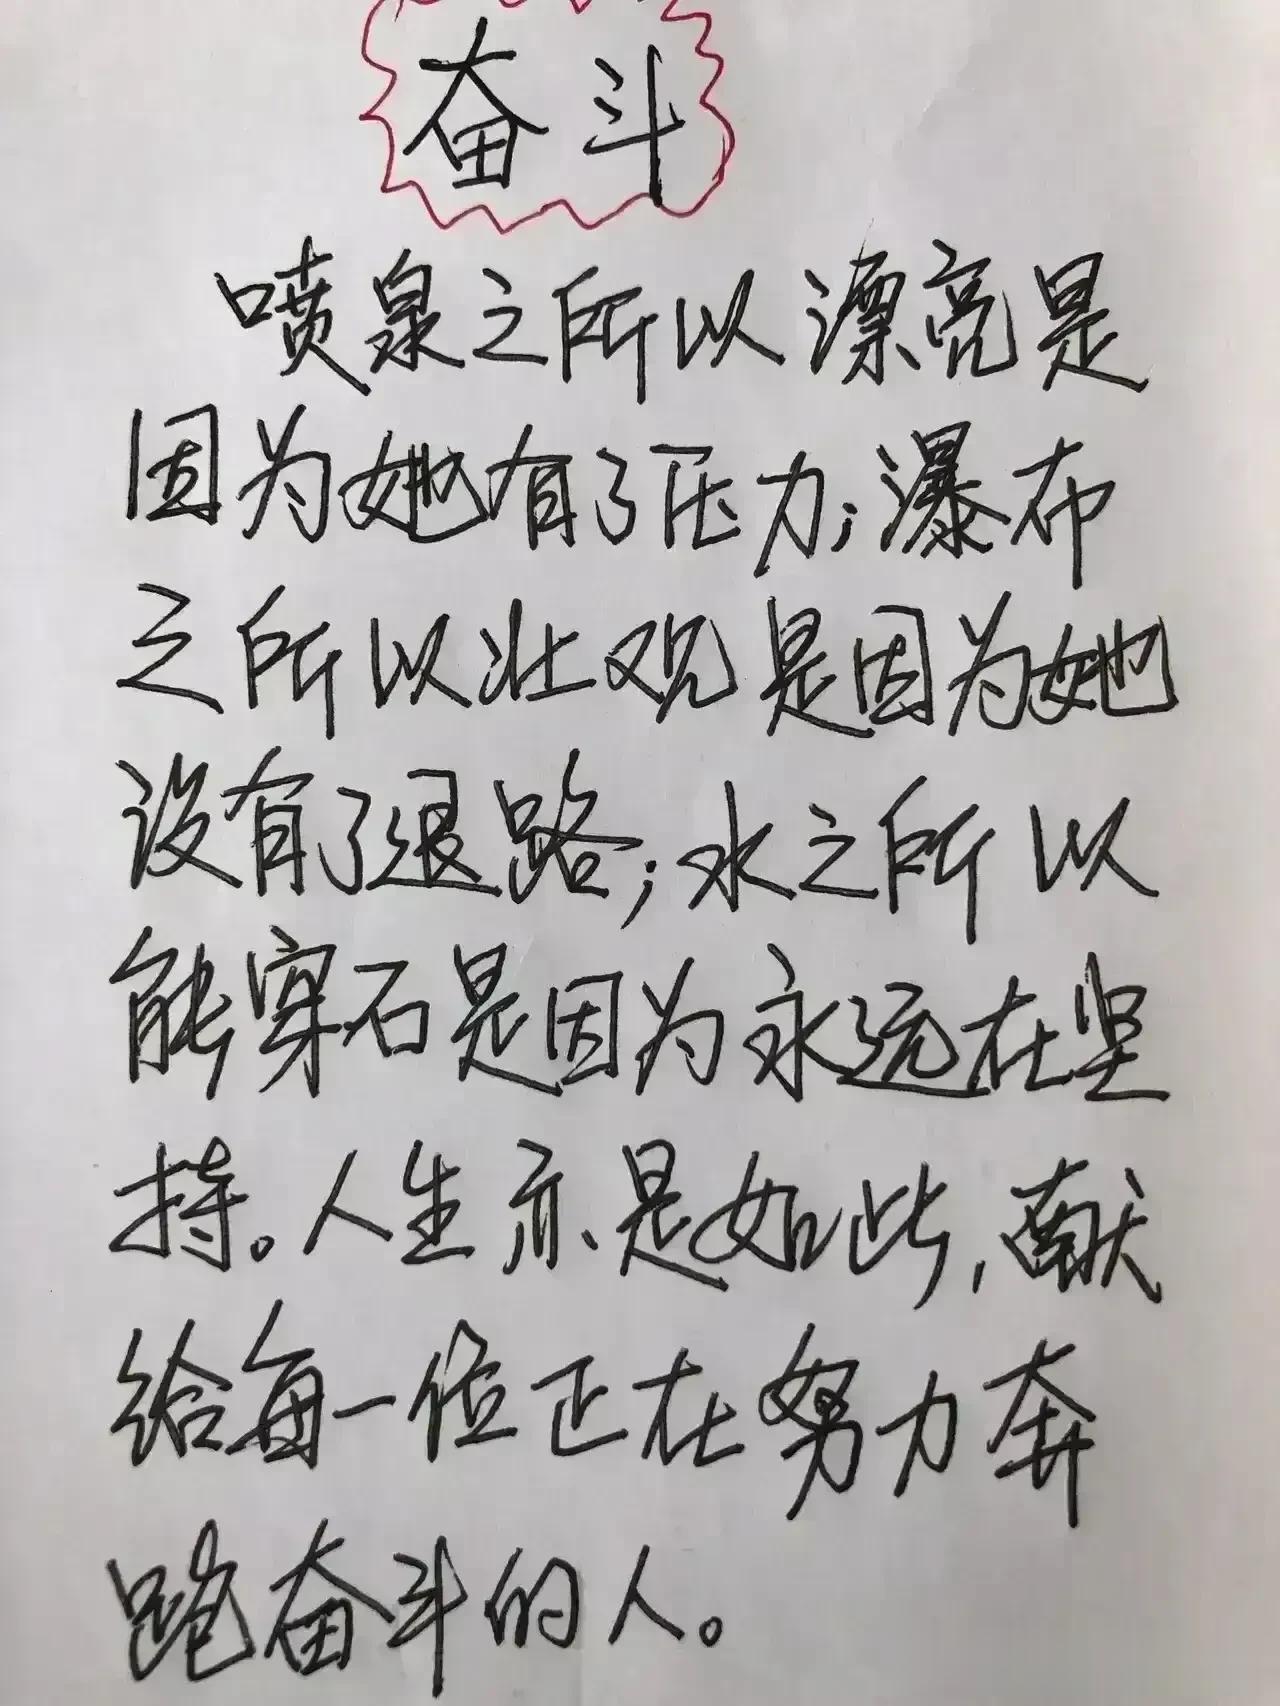 奋斗
喷泉之所以漂亮是
因为她有了压力;瀑布
之所以壮观是因为她
没有了退路;水之所以
能穿石是因为永远在坚
持。人生亦是如此,献
给每一位正在努力奔
跑奋斗的人。